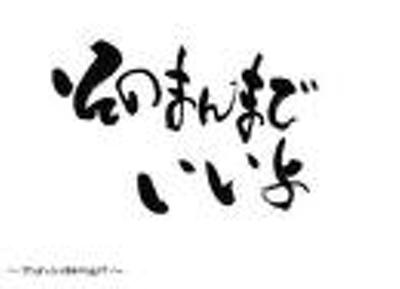 そのまんまで
いいよ